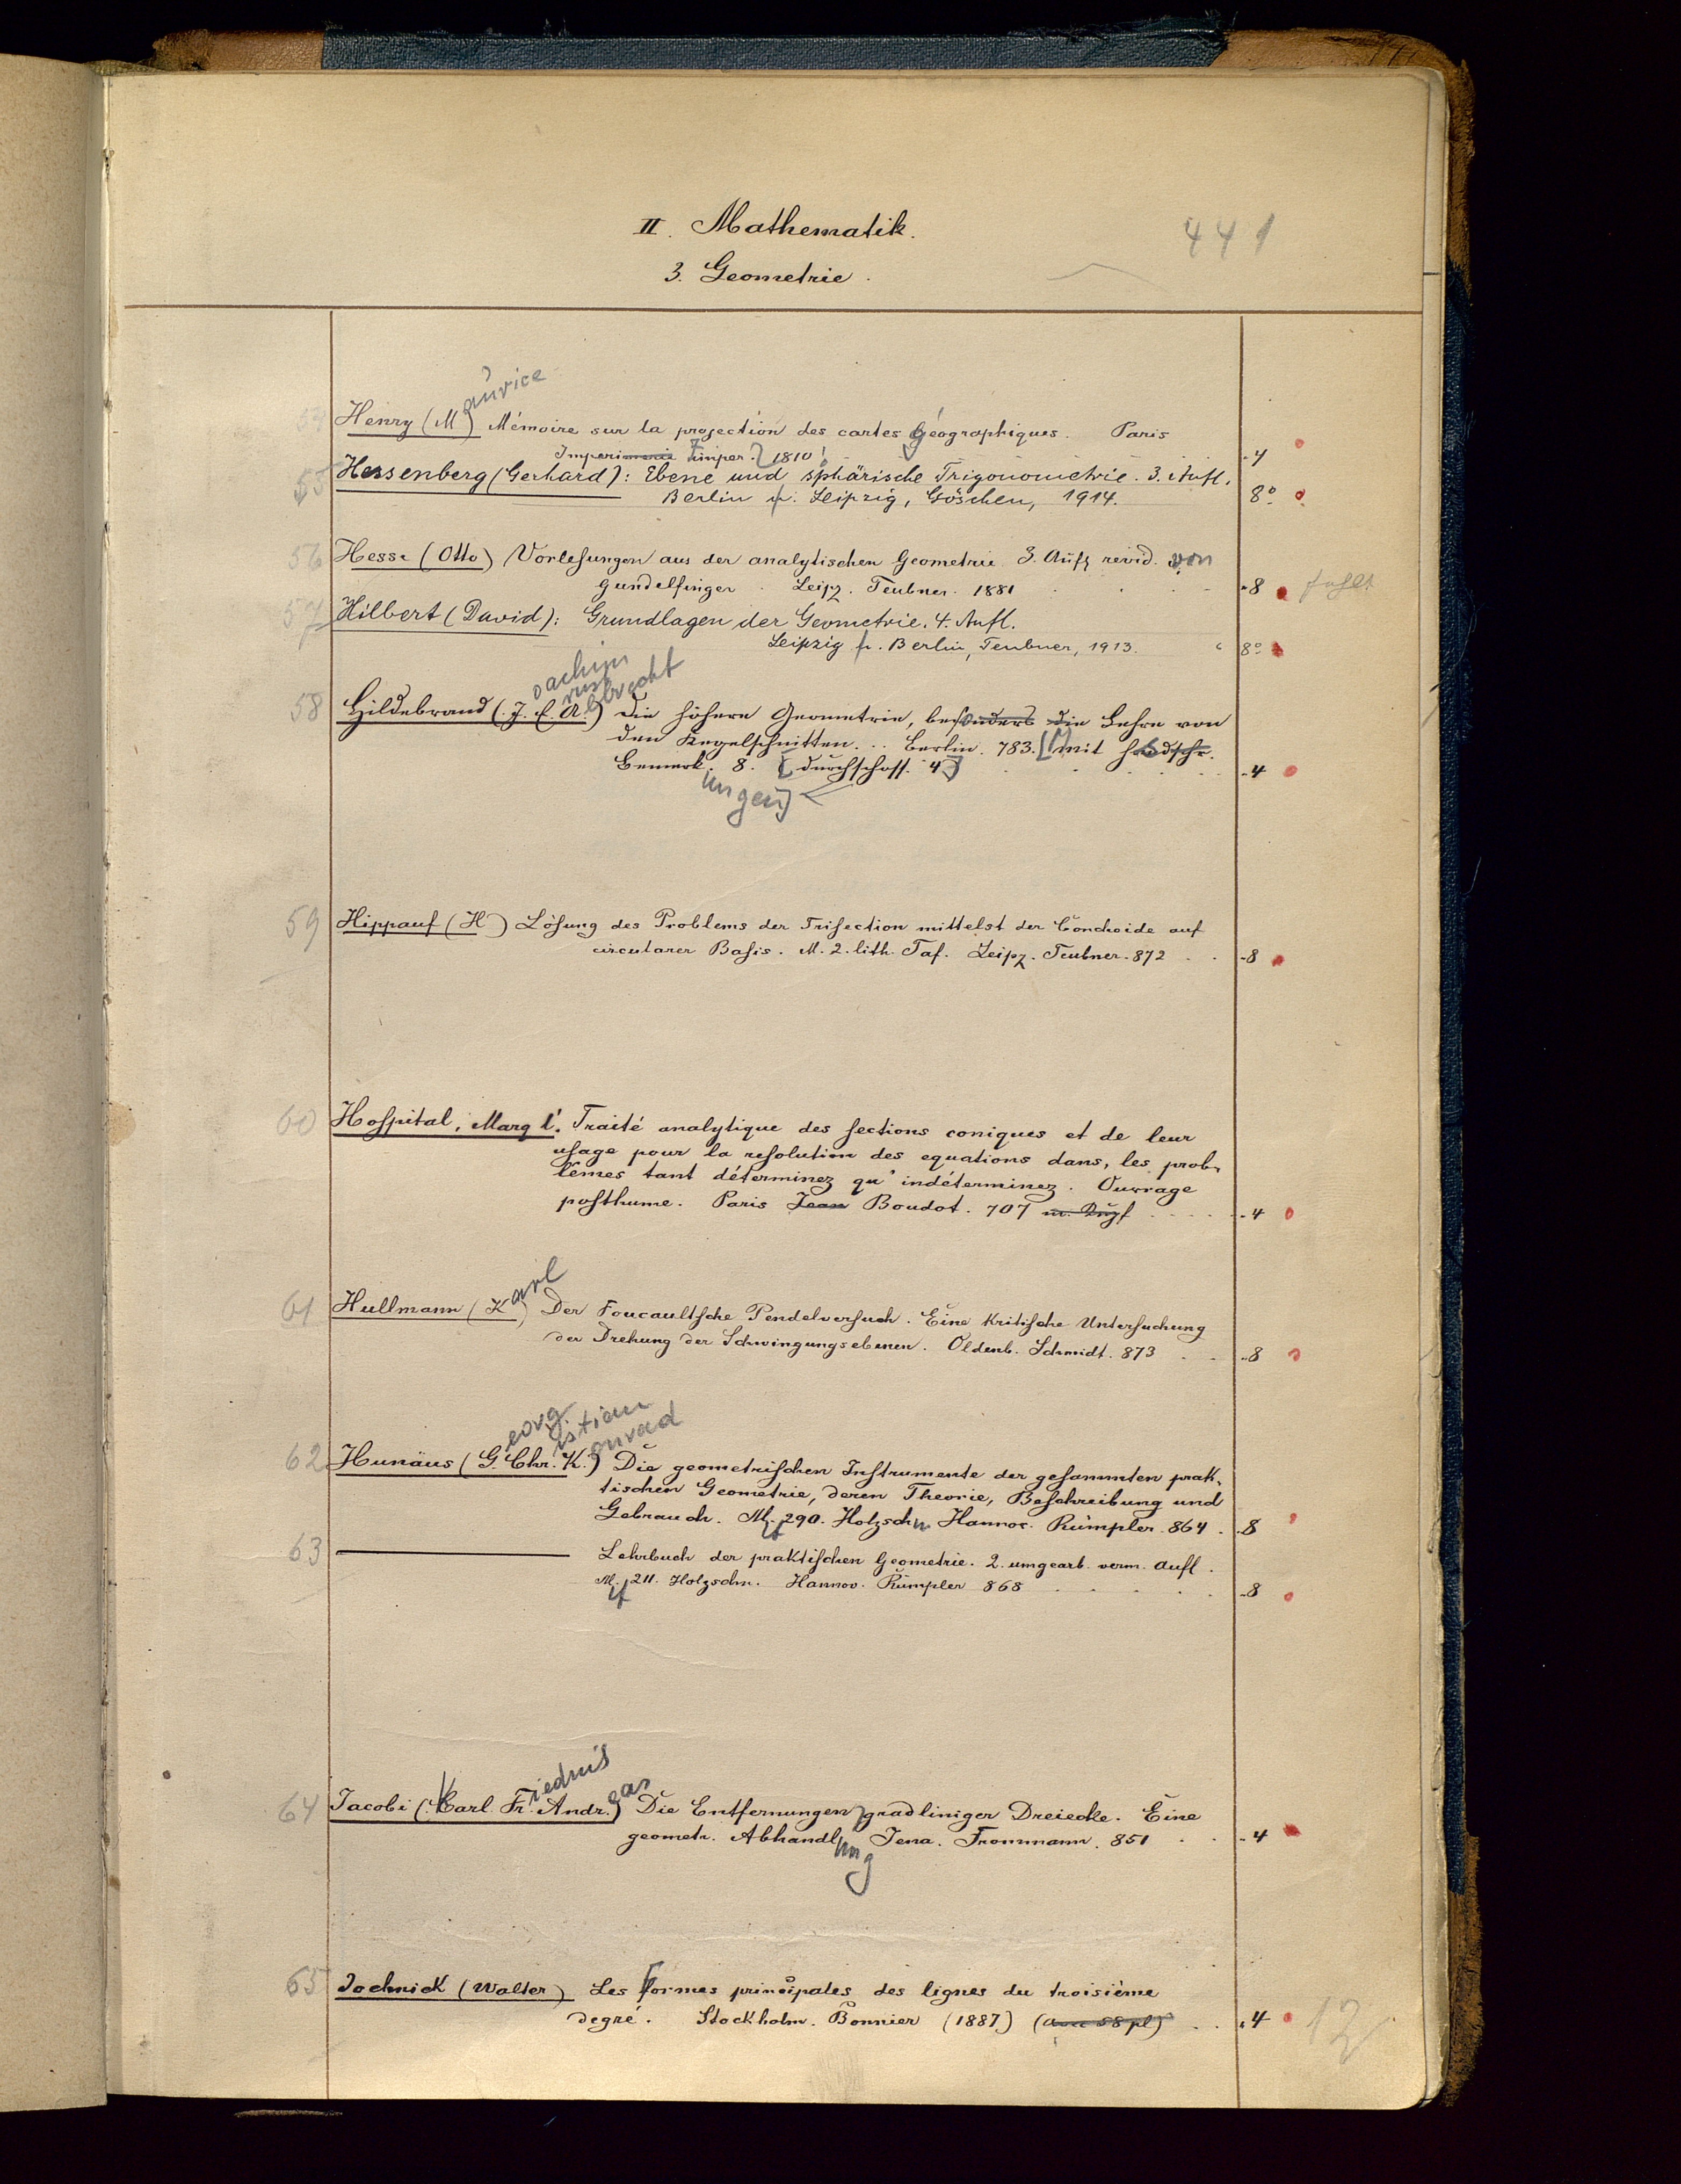 II. Mathematik.
441
3. Geometrie.
aurice
54 Henry (M) Mémoire sur la projection des cartes géographiques. Paris
Imperimerie imper. 1810 4
55 Hessenberg (Gerhard): Ebene und sphärische Trigonometrie. 3. Aufl.
Berlin u. Leipzig, Göschen, 1914. 8°
56 Hesse (Otto) Vorlesungen aus der analytischen Geometrie 3. Aufl revid. von
Gundelfinger. Leipz. Teubner. 1881 8 fehlt
57 Hilbert (David): Grundlagen der Geometrie. 4. Aufl.
Leipzig u. Berlin, Teubner, 1913. 8°
oachim
rnst
lbrecht
58 Hildebrand (J. E. A.) Die höhere Geometrie, besonders die Lehre von
den Kegelschnitten... Berlin. 783. [mit handschr.
Bemerk. 8. [durchschoss. 4] 4
ungen]
59 Hippauf (H) Lösung des Problems der Trisection mittelst der Conchoide auf
circularer Basis. M. 2. lith. Taf. Leipz. Teubner. 872 8
60 Hospital, Marq l'. Traité analytique des sections coniques et de leur
usage pour la resolution des equations dans, les prob-
lêmes tant déterminez qu'indéterminez. Ouvrage
posthume. Paris Jean Boudot. 707 4
arl
61 Hullmann (K) Der Foucaultsche Pendelversuch. Eine kritische Untersuchung
der Drehung der Schwingungsebenen. Oldenb. Schmidt. 873 8
eorg
istian
onrad
62 Hunäus (G. Chr. K.) Die geometrischen Instrumente der gesammten prak-
tischen Geometrie, deren Theorie, Beschreibung und
Gebrauch. M. 290. Holzschn. Hannov. Rümpler. 864. 8
63 ——— Lehrbuch der praktischen Geometrie. 2. umgearb. verm. Aufl.
M. 211. Holzschn. Hannov. Rümpler 868 8
64 Jacobi (Karl. Fr. Andr.) Die Entfernungen gradliniger Dreiecke. Eine
geometr. Abhandlung Jena. Frommann. 851 4
65 Jochnick (Walter) Les formes principales des lignes du troisième
degré. Stockholm. Bonnier (1887.) (avec 58 pl) 4
12